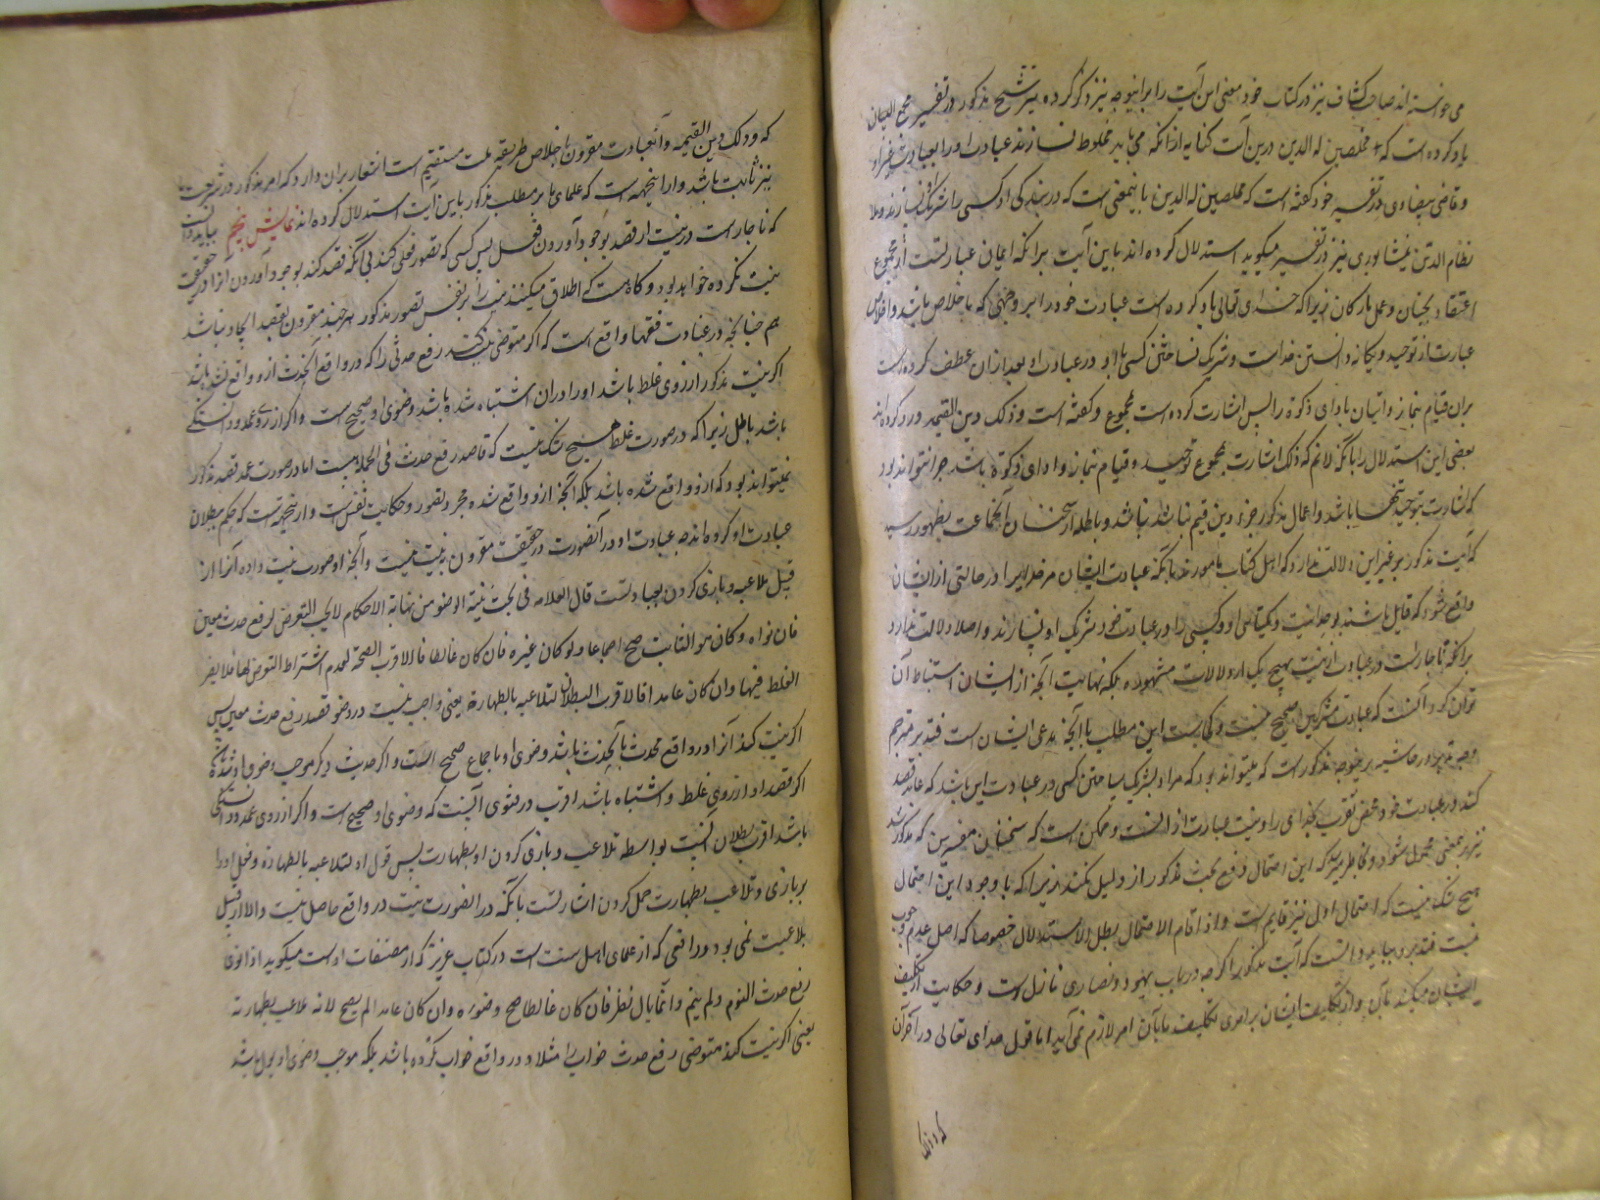 می‌دانسته اند صاحب کشاف نیز در کتاب خود معنی این آیت را براینوجه نیز ذکر کرده شیخ مذکور در تفسیر مجمع البیان
یاد کرده است که مخلصین له الدین درین آیت کنایه از آنکه می باید مخلوط نسازند عبادت او را بعبادت غیر او
و قاضی بیضاوی در تفسیر خود گفته است که مخلصین له الدین باینمعنی است که در بندگی او کسی را شریک او نیارند و ملا
نظام الدین نیشابوری نیز در تفسیر میگوید استدلال کرده اند باین آیت برانکه ایمان عبارتست از مجموع
اعتقاد بجنان و عمل بارکان زیرا که خدای تعالی یاد کرده است عبادت خود را بر وجهی که باخلاص باشد و اخلاص
عبارت از توحید و یگانه دانستن خداست و شریک نساختن کسی با او در عبادت او و بعد ازان عطف کرده است
بران قیام بنماز و اتیان بادای ذکوة را پس اشارت کرده است بمجموع و گفته است و ذلک دین القیمه و رد کرده اند
بعضی این استدلال را بانکه لانم که ذلک اشارت بمجموع توحید و قیام بنماز و ادای ذکوة باشد چرا نتواند بود
که اشارت بتوحید تنها باشد و اعمال مذکور جزء دین قیم نباشد و بالجمله از سخنان آنجماعت بظهور رسید
که آیت مذکور بر غیر این دلالت ندارد که اهل کتاب مامورند بانکه عبادت ایشان مر خدایرا در حالتی از ایشان
واقع شود که قایل باشند بوحدانیت و یکتائی او و کسی را در عبادت خود شریک او نیارند و اصلا دلالت ندارد
برانکه ناچار است در عبادت از نیت بهیچ یک از دلالات مشهوره بلکه نهایت آنچه از ایشان استنباط آن
توان کرد آنست که عبادت مشرکین صحیح نیست و کجاست این مطلب با آنچه مدعی ایشان است فتدبر مترجم
در حاشیه بر وجه مذکور است که میتواند بود که مراد بشریک ساختن کسی در عبادت این باشد که عابد قصد
کند در عبادت خود محض تقرب بخدای را و نیت عبارت از آنست و ممکن است که سخنان مفسرین که مذکور شد
نیز بر معنی محمول شود و بخاطر میرسد که این احتمال دفع بحث مذکور از دلیل نکند زیرا که با وجود این احتمال
هیچ شک نیست که احتمال اول نیز قایم است و اذا قام الاحتمال بطل الاستدلال خصوصا که اصل عدم وجوب
نیت فتدبر و بباید دانست که آیت مذکور اگرچه در باب یهود و نصاری نازل است و حکایت از تکلیف
ایشان میکند بآن و از تکلیف ایشان بامری تکلیف ما بآن امر لازم نمی آید اما قول خدای تعالی در آخر آن
که و ذلک
که و ذلک دین القیمه و آنعبادت مقرون باخلاص طریقه ملت مستقیم است اشعار بران دارد که امر مذکور در شریعت ما
نیز ثابت باشد و ازاینجهت است که علمای ما بر مطلب مذکور باین آیت استدلال کرده اند نمایش پنجم بباید دانست
که ناچار است در نیت از قصد بوجود آوردن فعل پس کسی که تصور فعلی کند بی آنکه قصد کند بوجود آوردن انرا در حقیقت
نیت نکرده خواهد بود و گاه هست که اطلاق میکنند نیت را بر نفس تصور مذکور هرچند مقرون بقصد ایجاد نباشد
هم چنانچه در عبادت فقها واقع است که اگر متوضی نیت کند رفع حدثی را که در واقع آنحدث ازو واقع نشده باشد
اگر نیت مذکور از روی غلط باشد او را دران اشتباه شده باشد وضوی او صحیح است و اگر از روی عمد و دانستگی
باشد باطل زیرا که در صورت غلط هیچ شک نیست که قاصد رفع حدث فی الجمله هست اما در صورت عمد قصد مذکور
نمیتواند بود که ازو واقع شده باشد بلکه آنچه ازو واقع شده مجرد تصور و حکایت نفس است و ازینجهت است که حکم ببطلان
عبادت او کرده اند چه عبادت او در آنصورت در حقیقت مقرون به نیت نیست و آنچه او صورت نیت داده آنرا از
قبیل ملاعبه و بازی کردن بعبادتست قال العلامه فی بحث نیة الوضو من نهایة الاحکام لایجب التعرض لرفع حدث معین
فان نواه و کان هو الثابت صح اجماعا و لو کان غیره فان کان غالطا فالاقرب الصحة لعدم اشتراط التعرض لها فلا یضر
الغلط فیها و ان کان عامدا فالاقرب البطلان لتلاعبه بالطهارة یعنی واجب نیست در وضو قصد رفع حدث معین پس
اگر نیت کند آنرا و در واقع محدث بانحدث باشد وضوی او باجماع صحیح است و اگر حدث دیگر موجب وضو او شده
اگر قصد او از روی غلط و اشتباه باشد اقرب در فتوی آنست که وضوی او صحیح است و اگر از روی عمد و دانستگی
باشد اقرب بطلان آنست بواسطه تلاعب و بازی کردن او بطهارت پس قول او لتلاعبه بالطهارة و فعل او را
بر بازی و تلاعب بطهارت حمل کردن اشارتست بانکه در انصورت نیت در واقع حاصل نیست والا از قبیل
ملاعبت نمی بود و رافعی که از علمای اهل سنت است در کتاب عزیز که از مصنفات اوست میگوید اذا نوی
رفع حدث النوم و لم ینم و انما بال نظر فان کان غالطا صح وضوءه و ان کان عامدا لم یصح لانه متلاعب بطهارته
یعنی اگر نیت کند متوضی رفع حدث خواب را مثلا و در واقع خواب نکرده باشد بلکه موجب وضوی او بول باشد